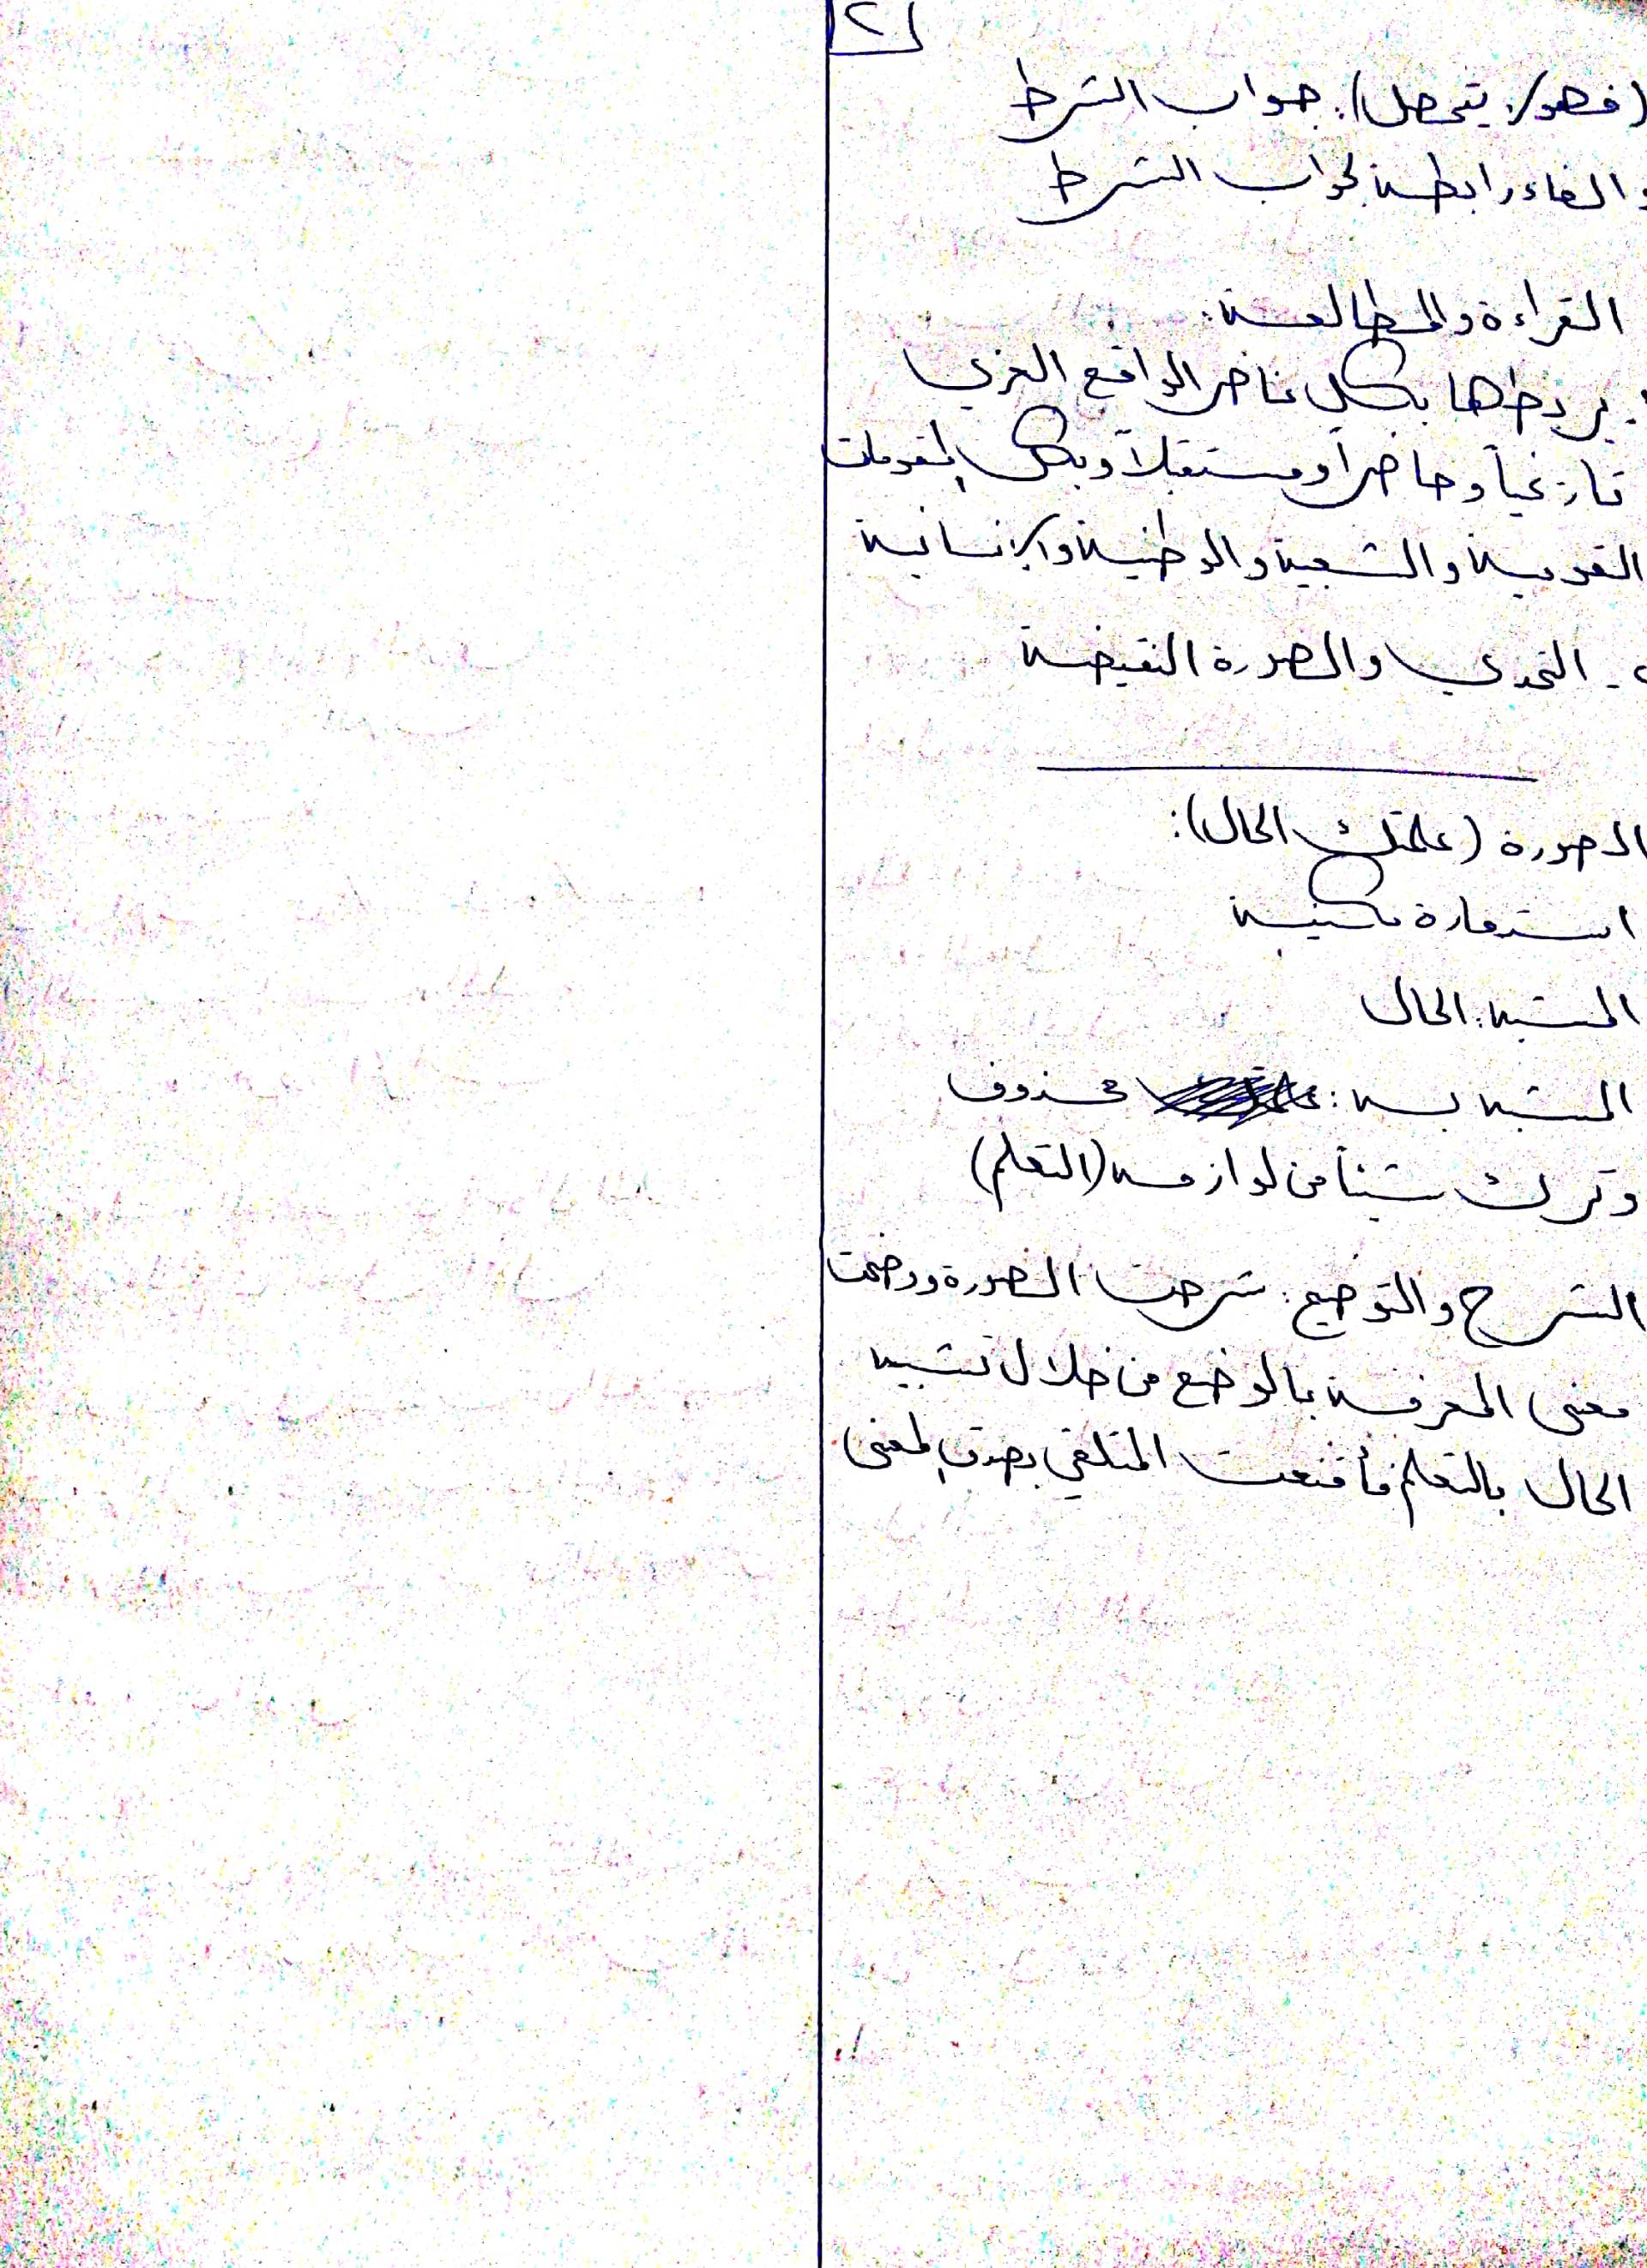 ٢
(فهو/: يتحصل): جواب الشرط
والفاء رابطة لجواب الشرط
القراءة والمطالعة:
يربطها بكل عناصر الواقع العربي
تاريخياً وحاضراً ومستقبلاً وبكل المقومات
القومية والشعبية والوطنية والإنسانية
- التحدي والصورة النقيضة
الصورة (علمتك الحال):
استعارة مكنية
المشبه: الحال
المشبه به: محذوف
وترك شيئاً من لوازمه (التعلم)
الشرح والتوضيح: شرحت الصورة ووضحت
معنى المعرفة بالوضع من خلال تشبيه
الحال بالتعلم فأقنعت المتلقي بصدق المعنى.